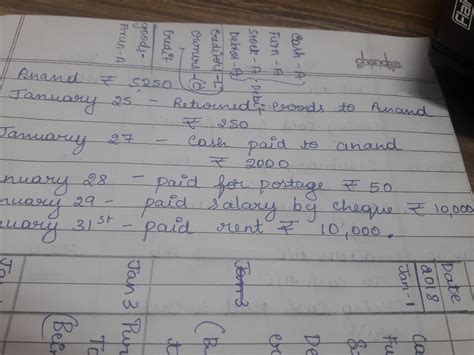 Cash - A
Furn - A
Stock - A
Debtor - A
Creditors - L
Debit
Credit
goods
Anand ₹ 5250
January 25 - Returned Goods to Anand
₹ 250
January 27 - Cash paid to anand
₹ 2000
nuary 28 - paid for postage ₹ 50
nuary 29 - paid salary by cheque ₹ 10,000
nuary 31st - paid rent ₹ 10,000.
Date
2018
Jan-1
Jan 3
Jan 3
Pur
To